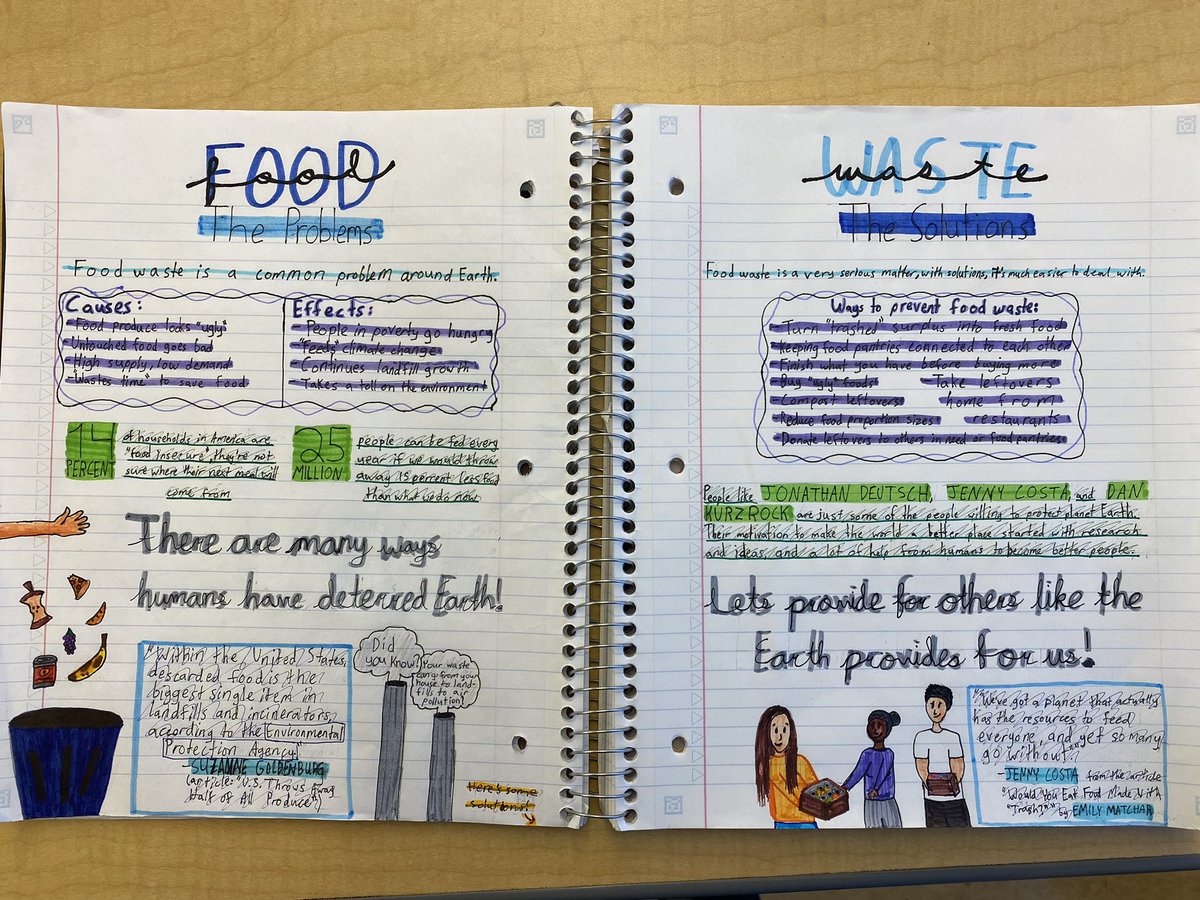 FOOD
food
The Problems
Food waste is a common problem around Earth.
Causes:
- Food produce looks "ugly"
- Untouched food goes bad
- High supply, low demand
- "Wastes time" to save food
Effects:
- People in poverty go hungry
- "Feeds" climate change
- Continues landfill growth
- Takes a toll on the environment
14
PERCENT
of households in America are
"food insecure" they're not
sure where their next meal will
come from
25
MILLION
people can be fed every
year if we would throw
away 15 percent less food
than what we do now
There are many ways
humans have deterred Earth!
"Within the United States,
descarded food is the
biggest single item in
landfills and incinerators,
according to the Environmental
Protection Agency"
- SUZANNE GOLDENBURG
(article: "U.S. Throws Away
Half of All Produce")
Did
you know?
Your waste
can go from your
house to land-
fills to air
pollution!
Here's some
solutions!
WASTE
waste
The Solutions
Food waste is a very serious matter, with solutions, it's much easier to deal with.
Ways to prevent food waste:
- Turn "trashed" surplus into fresh food
- Keeping food pantries connected to each other
- Finish what you have before buying more
- Bug "ugly" foods
- Compost leftovers
- Reduce food proportion sizes
- Take leftovers
home from
restaurants
- Donate leftovers to others in need or food pantries
People like JONATHAN DEUTSCH, JENNY COSTA, and DAN
KURZROCK are just some of the people willing to protect planet Earth.
Their motivation to make the world a better place started with research
and ideas, and a lot of help from humans to become better people.
Lets provide for others like the
Earth provides for us!
"We've got a planet that actually
has the resources to feed
everyone, and yet so many
go without"
- JENNY COSTA from the article
"Would You Eat Food Made With
"Trash?"" by EMILY MATCHAR